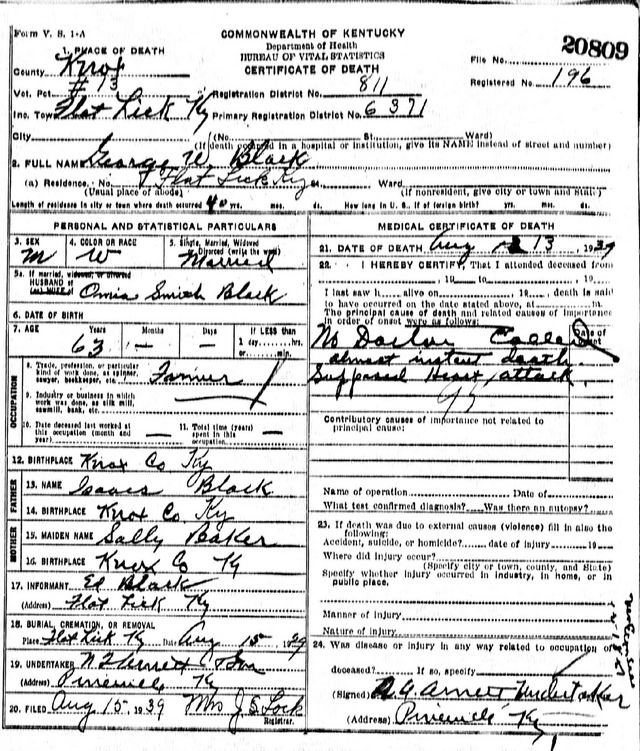 Form V. S. 1-A
COMMONWEALTH OF KENTUCKY
Department of Health
BUREAU OF VITAL STATISTICS
CERTIFICATE OF DEATH
File No. 20809
Registered No. 196
1. PLACE OF DEATH
County Knox
Vot. Pct. #13
Registration District No. 811
Inc. Town Flat Lick Ky
Primary Registration District No. 6371
City (No. St. Ward)
(If death occurred in a hospital or institution, give its NAME instead of street and number)
2. FULL NAME George W. Black
(a) Residence. No. Flat Lick Ky St. Ward
(Usual place of abode) (If nonresident, give city or town and State)
Length of residence in city or town where death occurred 40 yrs. mos. ds. How long in U. S., if of foreign birth? yrs. mos. ds.
PERSONAL AND STATISTICAL PARTICULARS
3. SEX M
4. COLOR OR RACE W
5. Single, Married, Widowed Divorced (write the word) Married
5a. If married, widowed, or divorced
HUSBAND of
(or) WIFE of Smith Black
6. DATE OF BIRTH
7. AGE Years 63 Months — Days — If LESS than
1 day, hrs.
or min.
OCCUPATION
8. Trade, profession, or particular
kind of work done, as spinner,
sawyer, bookkeeper, etc. Farmer
9. Industry or business in which
work was done, as silk mill,
sawmill, bank, etc.
10. Date deceased last worked at
this occupation (month and
year) —
11. Total time (years)
spent in this
occupation —
12. BIRTHPLACE Knox Co Ky
FATHER
13. NAME Black
14. BIRTHPLACE Knox Co. Ky
MOTHER
15. MAIDEN NAME Sally Baker
16. BIRTHPLACE Knox Co Ky
17. INFORMANT Ed Black
(Address) Flat Lick Ky
18. BURIAL, CREMATION, OR REMOVAL
Place Flat Lick Ky Date Aug 15 39
19. UNDERTAKER Arnett & Son
(Address) Pineville Ky
20. FILED Aug 15 1939 Mrs J. S. Lock
Registrar.
MEDICAL CERTIFICATE OF DEATH
21. DATE OF DEATH Aug 13, 1939
22. I HEREBY CERTIFY, That I attended deceased from
, 19 to , 19
I last saw h alive on , 19 , death is said
to have occurred on the date stated above, at m.
The principal cause of death and related causes of importance
in order of onset were as follows: Date of
onset
No Doctor Called
almost instant death
Supposed Heart attack
Contributory causes of importance not related to
principal cause:
Name of operation Date of
What test confirmed diagnosis? Was there an autopsy?
23. If death was due to external causes (violence) fill in also the
following:
Accident, suicide, or homicide? date of injury 19
Where did injury occur?
(Specify city or town, county, and State)
Specify whether injury occurred in industry, in home, or in
public place.
Manner of injury
Nature of injury
24. Was disease or injury in any way related to occupation of
deceased? If so, specify
(Signed) Arnett Undertaker
(Address) Pineville Ky